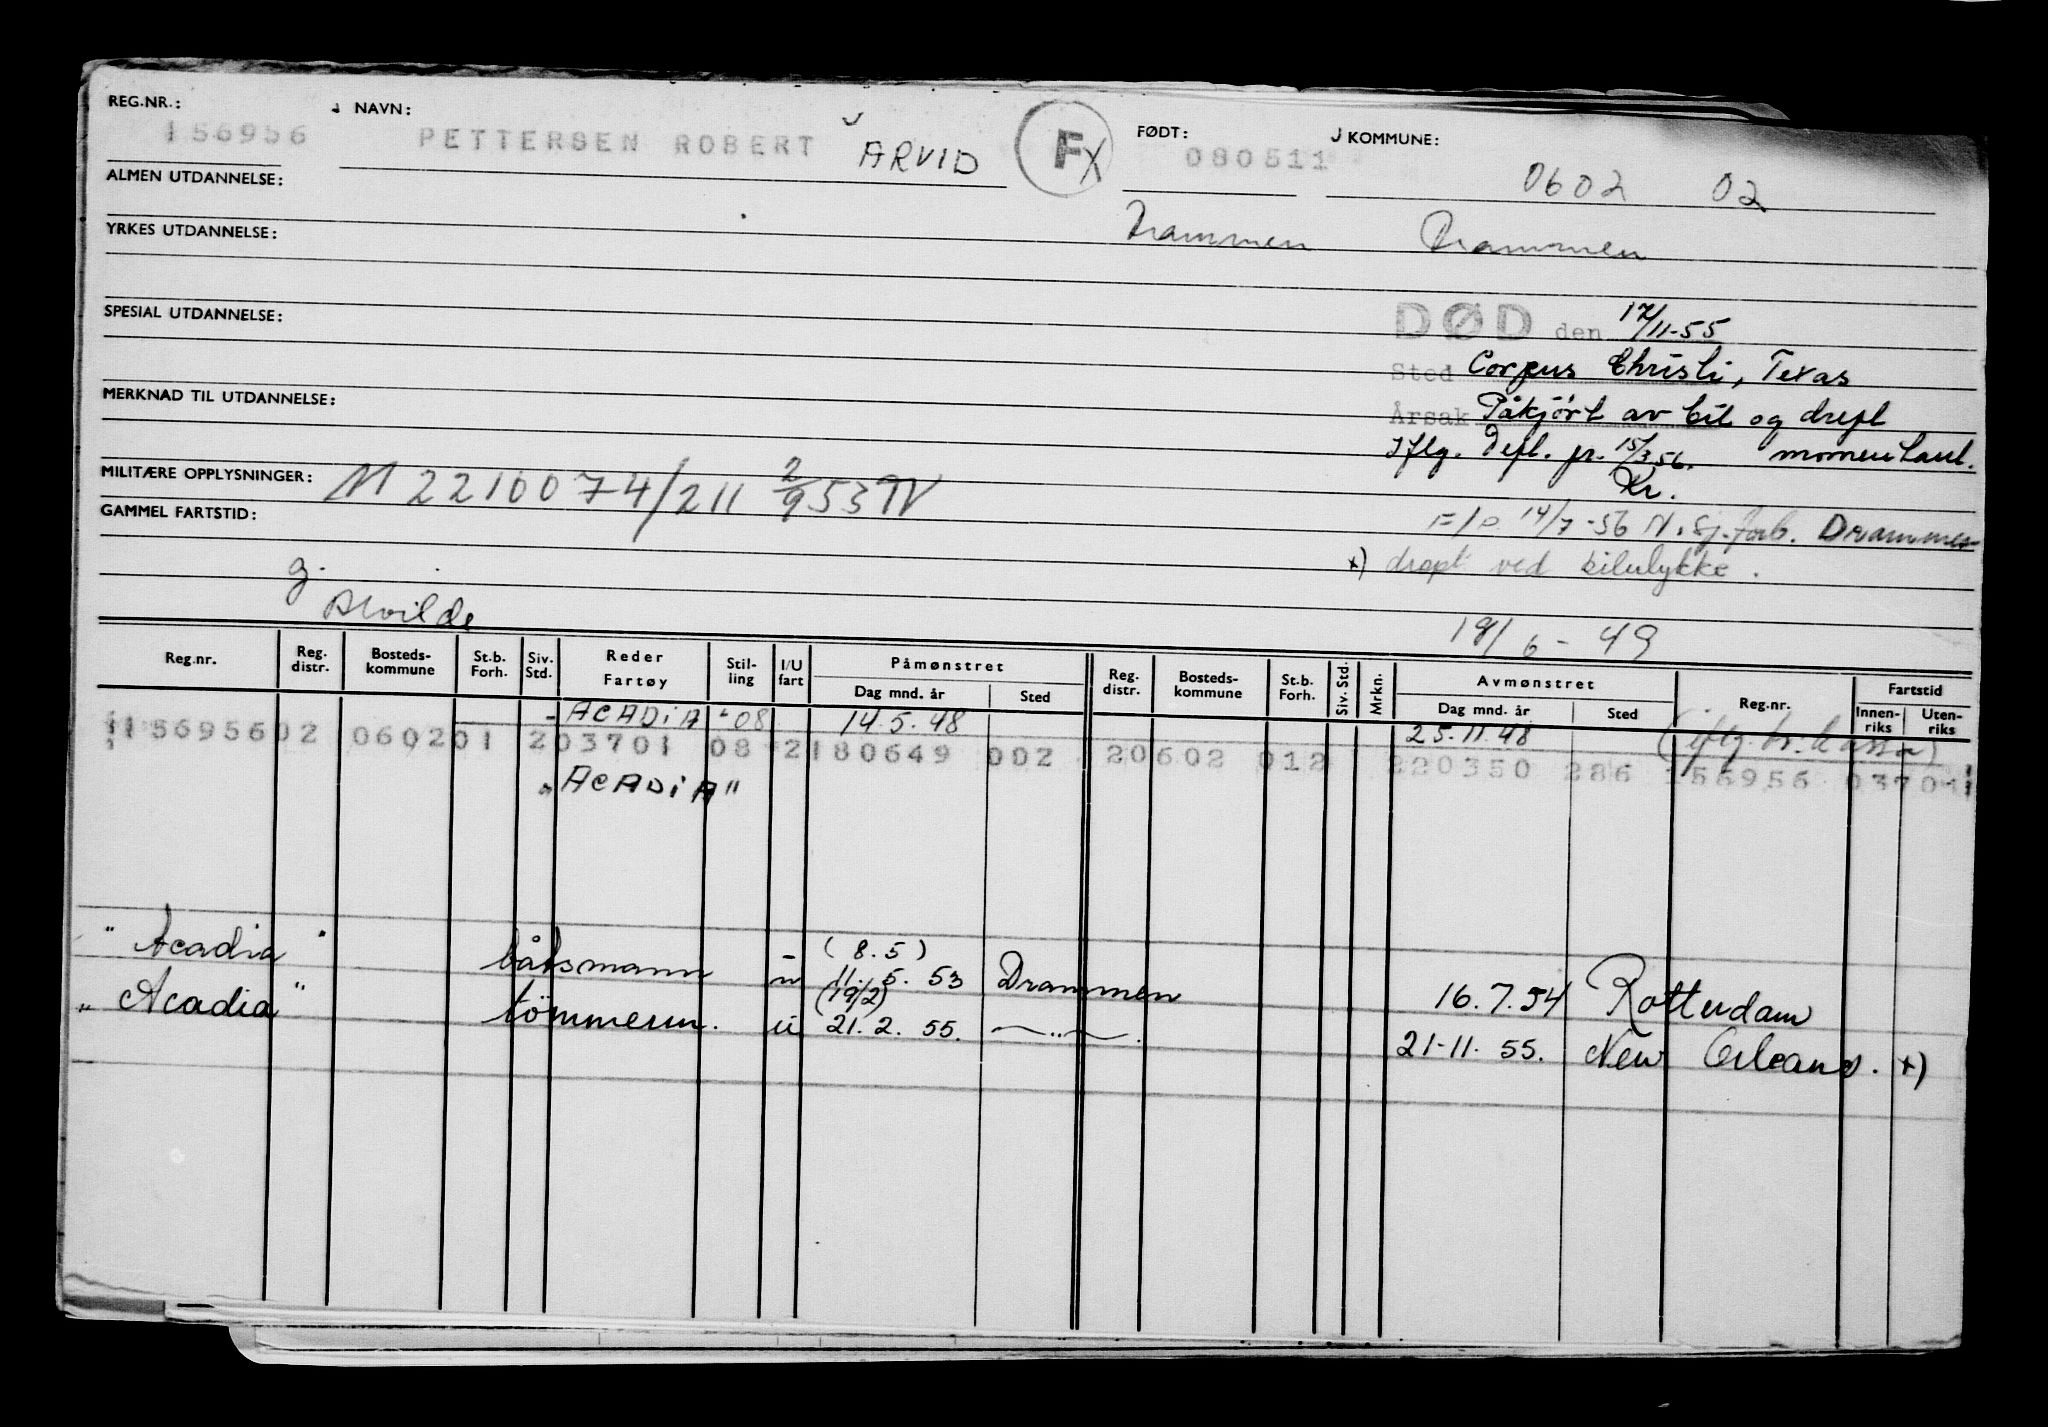 REG.NR.: NAVN: FØDT: KOMMUNE:
156956 PETTERSEN ROBERT ARVID Fx 080511 0602 02
ALMEN UTDANNELSE:
Drammen Drammen
YRKES UTDANNELSE:
SPESIAL UTDANNELSE:
DØD den 17/11-55
Sted Corpus Christi, Texas
MERKNAD TIL UTDANNELSE:
Årsak Påkjørt av bil og drept
Iflg. Defl. pr. 15/3 56. momentant.
Kr.
MILITÆRE OPPLYSNINGER: M 2210074/211 2/9 53
GAMMEL FARTSTID:
F/P. 14/7-56 N. Sj.forb. Drammen
x) drept ved bilulykke.
g.
Alvilde
18/6-49
Reg.nr. Reg. distr. Bosteds-kommune St.b. Forh. Siv. Std. Reder Fartøy Stil-ling I/U fart Påmønstret Dag mnd. år Sted Reg. distr. Bosteds-kommune St.b. Forh. Siv. Std. Mrkn. Avmønstret Dag mnd. år Sted Reg.nr. Fartstid Innen-riks Uten-riks
ACADiA "08 14.5.48 25.11.48 (iflg. tr. kassa)
15695602 060201 203701 08 2180649 002 20602 012 220350 286 156956 03701
"ACADiA"
"Acadia" båtsmann u (8.5) 11.5.53 Drammen 16.7.54 Rotterdam
"Acadia" tömmerm. u (19/2) 21.2.55. —〃— 21-11.55. New Orleans. x)